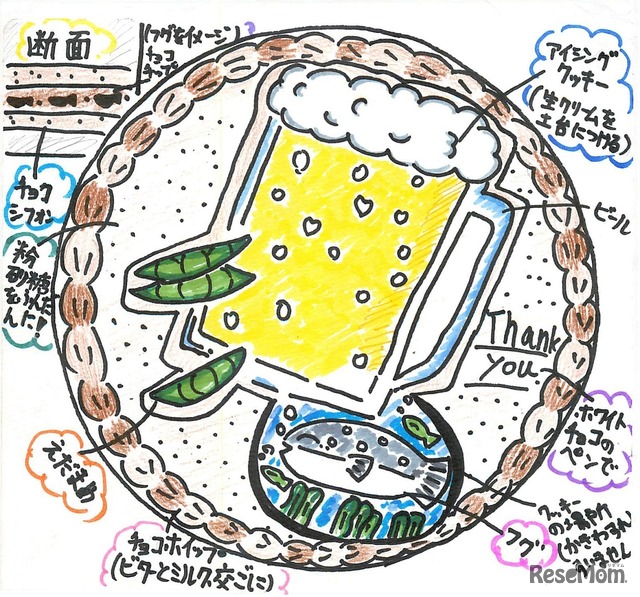 断面
(フグをイメージ)
チョコ
チップ
アイシング
クッキー
(生クリームを
土台につける)
チョコ
シフォン
ビール
粉
砂糖
Thank
you
ホワイト
チョコの
ペンで
えだまめ
クッキー
フグ
チョコホイップ
(ビターとミルク交ごに)
ReseMom.